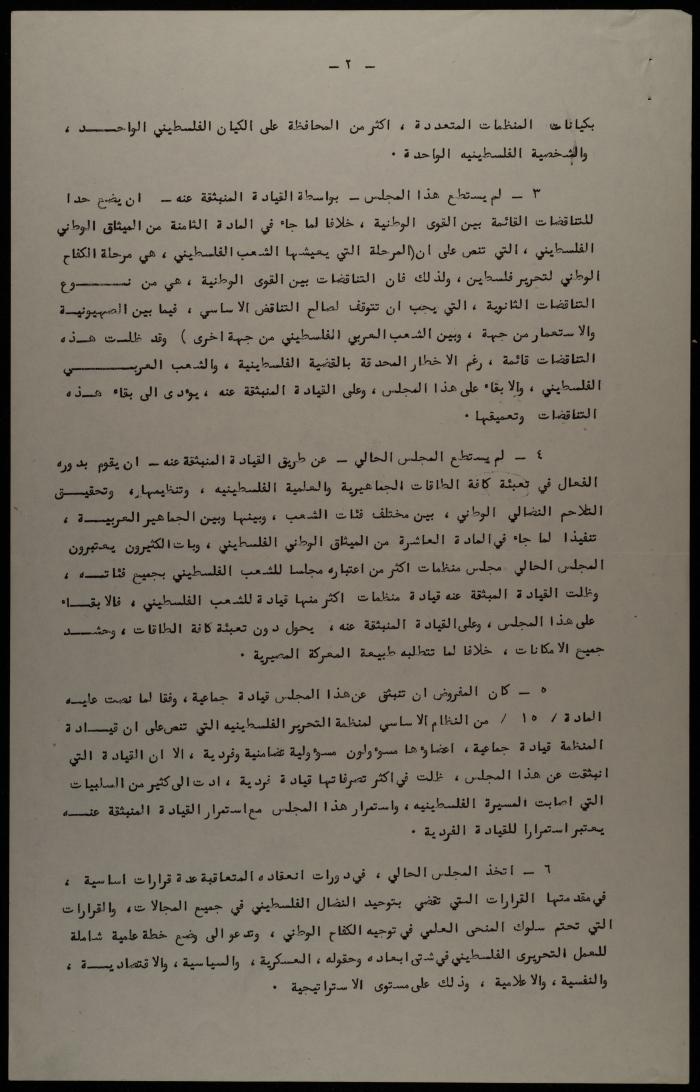 - ٢ -
بكيانات المنظمات المتعددة ، اكثر من المحافظة على الكيان الفلسطيني الواحـــد ،
والشخصية الفلسطينيه الواحدة .
٣ - لم يستطع هذا المجلس - بواسطة القيادة المنبثقة عنه - ان يضع حدا
للتناقضات القائمة بين القوى الوطنية ، خلافا لما جاء في المادة الثامنة من الميثاق الوطني
الفلسطيني ، التي تنص على ان (المرحلة التي يعيشها الشعب الفلسطيني ، هي مرحلة الكفاح
الوطني لتحرير فلسطين ، ولذلك فان التناقضات بين القوى الوطنية ، هي من نـــــوع
التناقضات الثانوية ، التي يجب ان تتوقف لصالح التناقض الاساسي ، فيما بين الصهيونيـة
والاستعمار من جهة ، وبين الشعب العربي الفلسطيني من جهة اخرى ) وقد ظلـت هـذه
التناقضات قائمة ، رغم الاخطار المحدقة بالقضية الفلسطينية ، والشعب العربـــــي
الفلسطيني ، والابقاء على هذا المجلس ، وعلى القيادة المنبثقة عنه ، يؤدى الى بقاء هـذه
التناقضات وتعميقها .
٤ - لم يستطع المجلس الحالي - عن طريق القيادة المنبثقة عنه - ان يقوم بدوره
الفعال في تعبئة كافة الطاقات الجماهيرية والعلمية الفلسطينيه ، وتنظيمها، وتحقيـق
التلاحم النضالي الوطني ، بين مختلف فئات الشعب ، وبينها وبين الجماهير العربيـــة ،
تنفيذا لما جاء في المادة العاشرة من الميثاق الوطني الفلسطيني ، وبات الكثيرون يعتبرون
المجلس الحالي مجلس منظمات اكثر من اعتباره مجلسا للشعب الفلسطيني بجميع فئاتـــه ،
وظلت القيادة المبثقة عنه قيادة منظمات اكثر منها قيادة للشعب الفلسطيني ، فالابقـــاء
على هذا المجلس ، وعلى القيادة المنبثقة عنه ، يحول دون تعبئة كافة الطاقات ، وحشـــد
جميع الامكانات ، خلافا لما تتطلبه طبيعة المعركة المصيرية .
٥ - كان المفروض ان تنبثق عن هذا المجلس قيادة جماعية ، وفقا لما نصت عليـه
المادة / ١٥ / من النظام الاساسي لمنظمة التحرير الفلسطينيه التي تنص على ان قيـــادة
المنظمة قيادة جماعية ، اعضاؤها مسؤولون مسؤولية تضامنية وفردية ، الا ان القيادة التي
انبثقت عن هذا المجلس ، ظلت في اكثر تصرفاتها قيادة فردية ، ادت الى كثير من السلبيات
التي اصابت المسيرة الفلسطينيه ، واستمرار هذا المجلس مع استمرار القيادة المنبثقة عنـــه
يعتبر استمرارا للقيادة الفردية .
٦ - اتخذ المجلس الحالي ، في دورات انعقاده المتعاقبة عدة قرارات اساسية ،
في مقدمتها القرارات التي تقضي بتوحيد النضال الفلسطيني في جميع المجالات، والقرارات
التي تحتم سلوك المنحى العلمي في توجيه الكفاح الوطني ، وتدعو الى وضع خطة علمية شاملة
للعمل التحريرى الفلسطيني في شتى ابعاده وحقوله ، العسكرية ، والسياسية ، والاقتصاديـــة ،
والنفسية ، والاعلامية ، وذلك على مستوى الاستراتيجية .